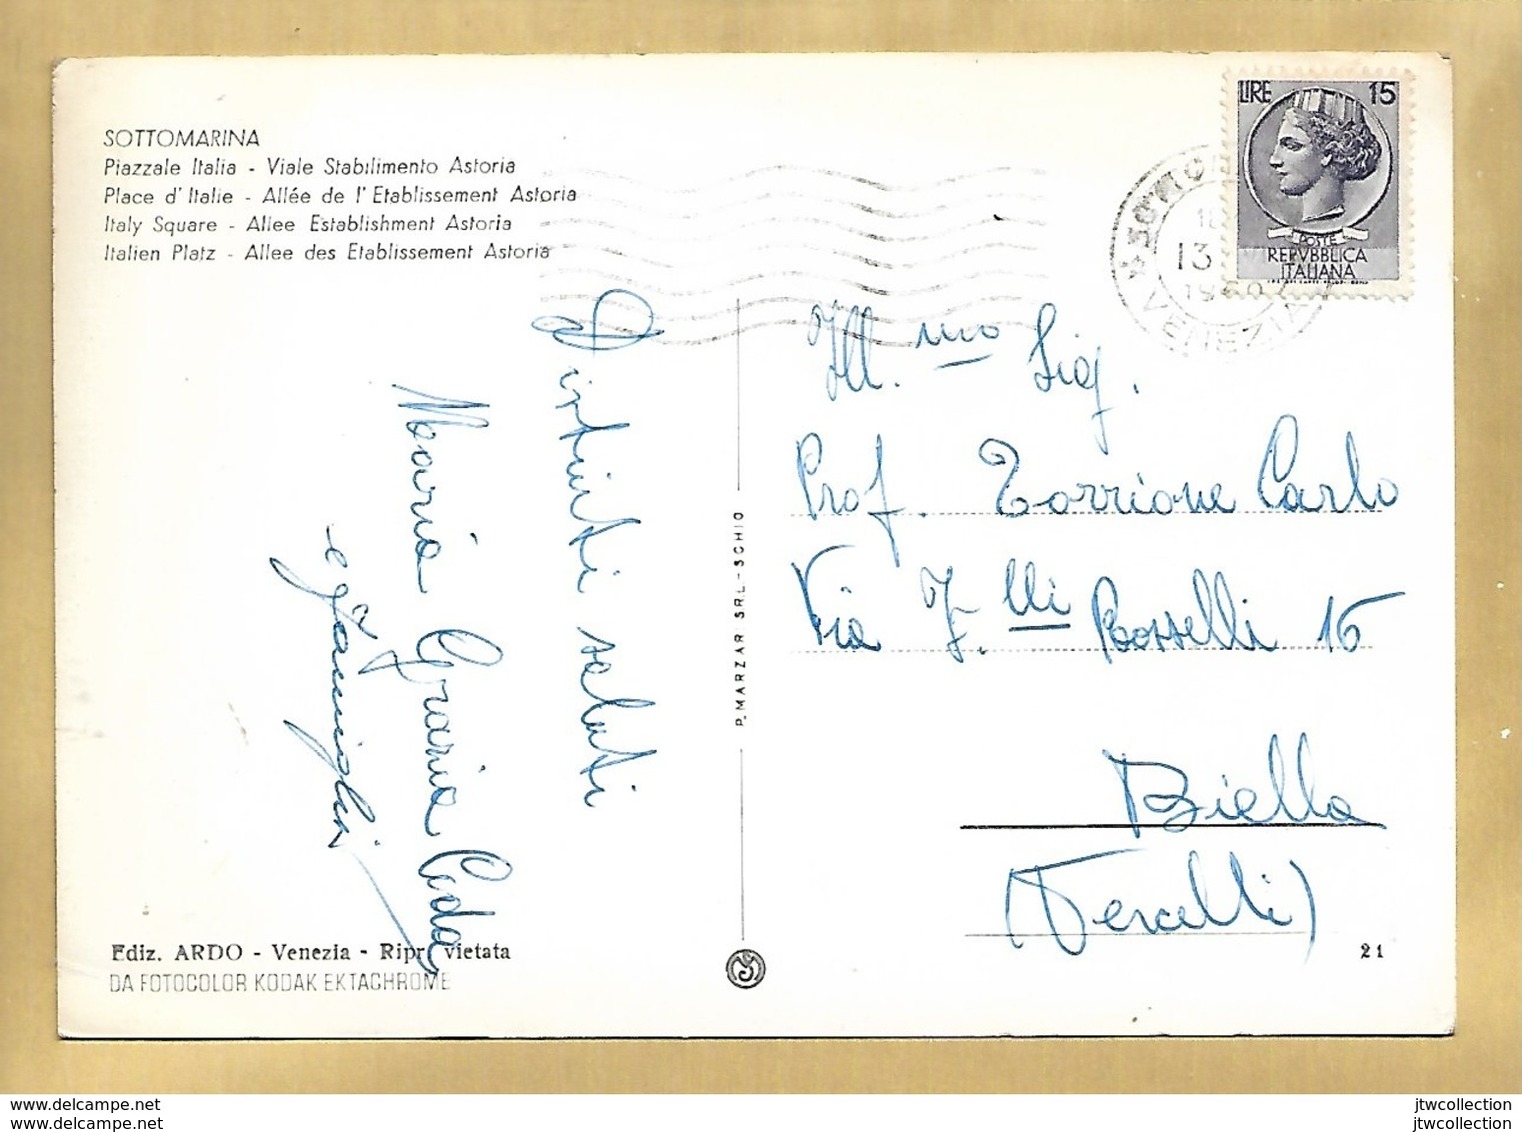 SOTTOMARINA
Piazzale Italia - Viale Stabilimento Astoria
Place d' Italie - Allée de l' Etablissement Astoria
Italy Square - Allee Establishment Astoria
Italien Platz - Allee des Etablissement Astoria
LIRE 15
POSTE
REPVBBLICA
ITALIANA
13
VENEZIA
Distinti saluti
Maria Grazia
e famiglia
Ill.mo Sig.
Prof. Torrione Carlo
Via F.lli Rosselli 16
Biella
(Vercelli)
P. MARZAR SRL - SCHIO
Ediz. ARDO - Venezia - Ripr. vietata
DA FOTOCOLOR KODAK EKTACHROME
21
www.delcampe.net
www.delcampe.net
jtwcollection
jtwcollection